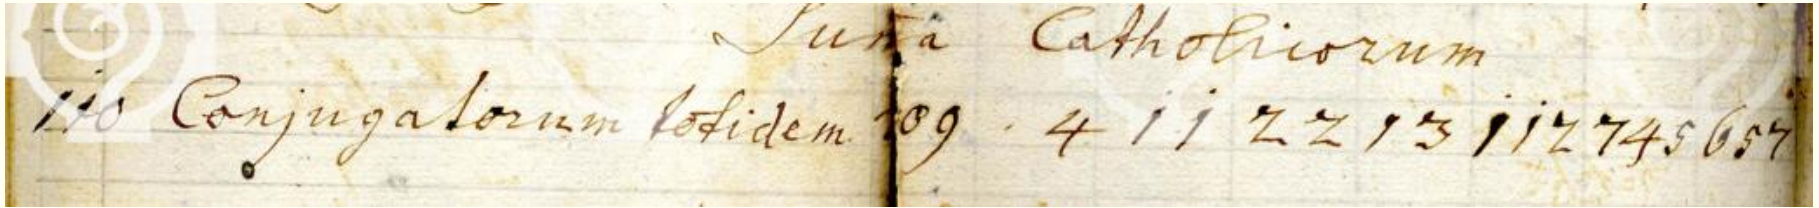 Suma Catholicorum
110 Conjugatorum totidem 109 4 11 22 13 112 745 657